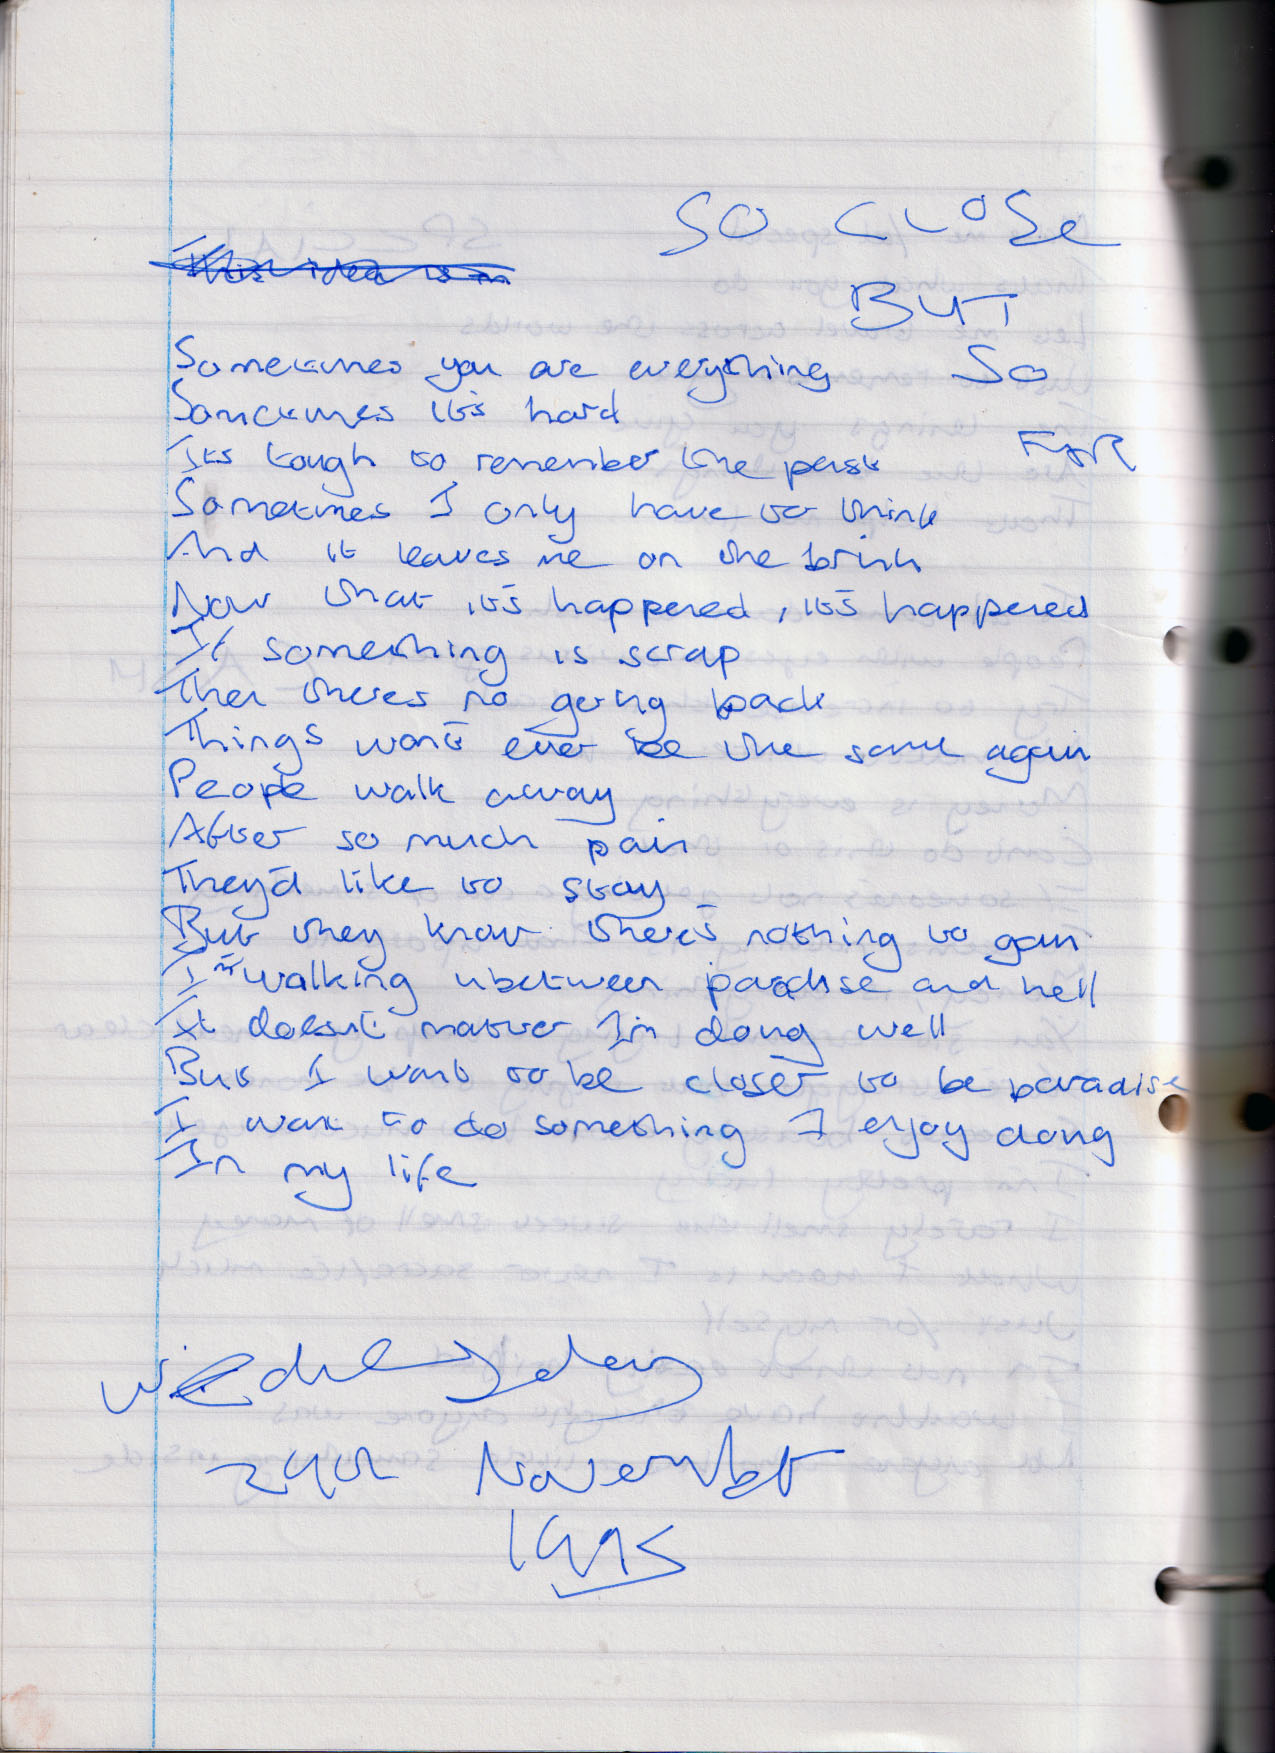 SO CLOSE
BUT
SO
FAR
This idea is in
Sometimes you are everything
Sometimes it's hard
Its tough to remember the past
Sometimes I only have to think
And it leaves me on the brink
Now what it's happened, it's happened
If something is scrap
Then theres no going back
Things won't ever be the same again
People walk away
After so much pain
They'd like to stay
But they know there's nothing to gain
I'm walking between paradise and hell
It doesn't matter I'm doing well
But I want to be closer to be paradise
I want to do something I enjoy doing
In my life
Wednesday
29th November
1995